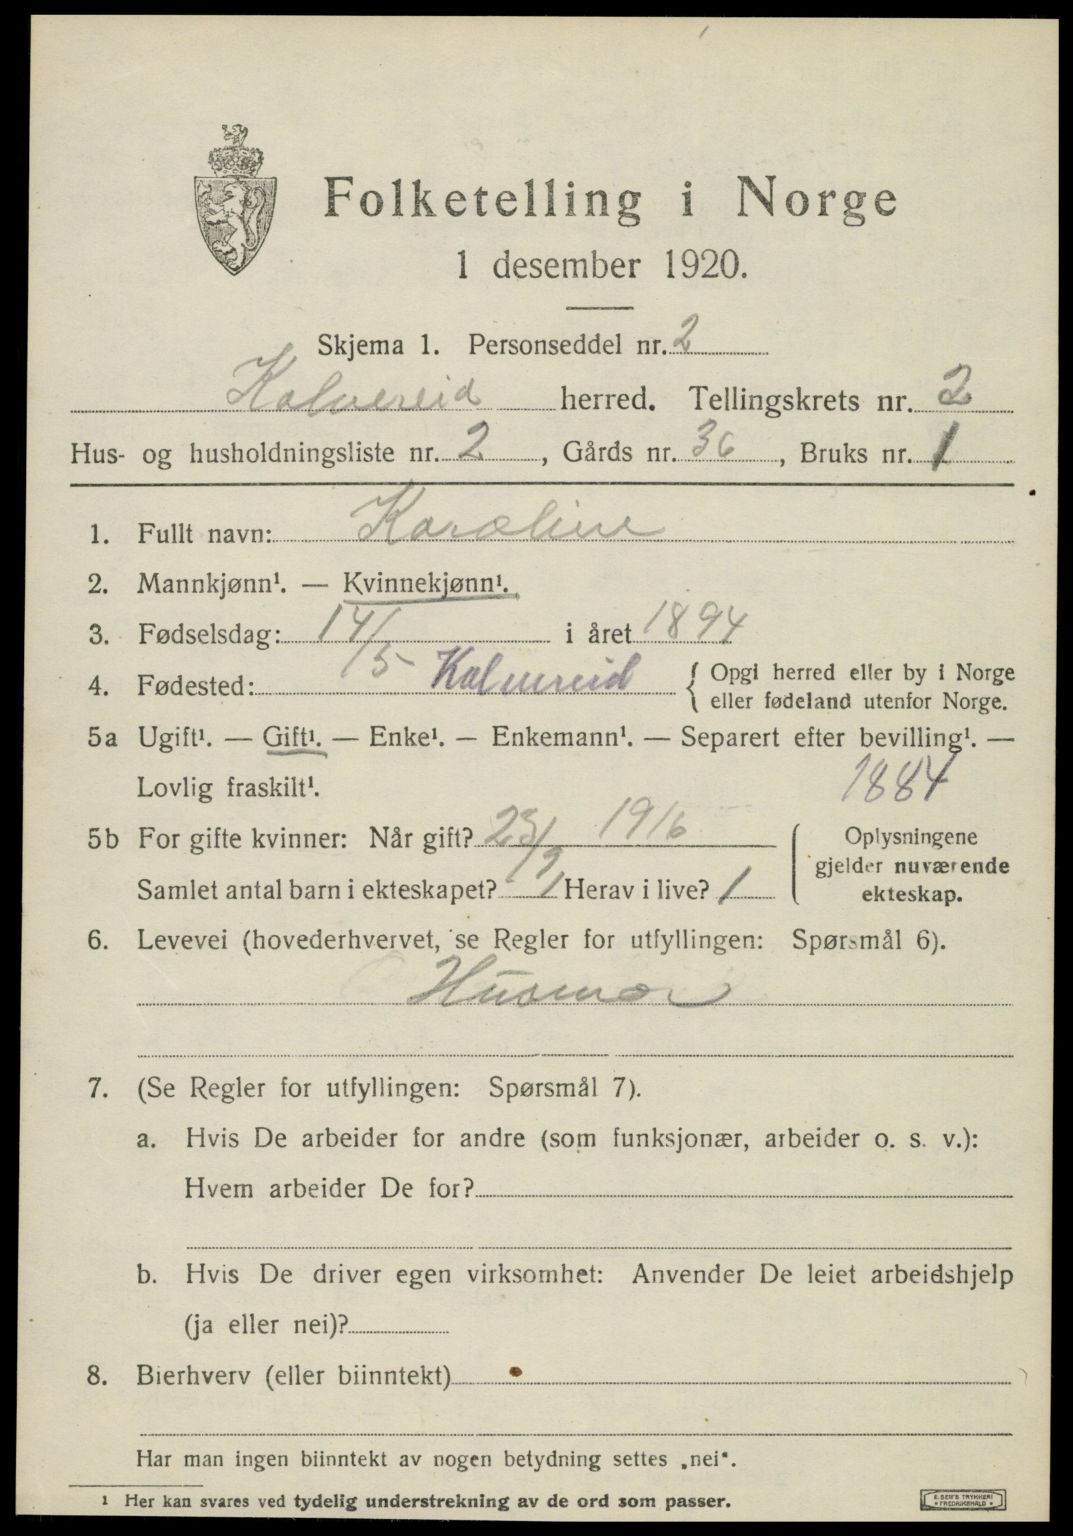 Folketelling i Norge
1 desember 1920.
Skjema 1. Personseddel nr. 2
Kalvereid herred. Tellingskrets nr. 2
Hus- og husholdningsliste nr. 2, Gårds nr. 36, Bruks nr. 1
1. Fullt navn: Karoline
2. Mannkjønn¹. — Kvinnekjønn¹.
3. Fødselsdag: 14/5 i året 1894
4. Fødested: Kalvereid { Opgi herred eller by i Norge
eller fødeland utenfor Norge.
5a Ugift¹. — Gift¹. — Enke¹. — Enkemann¹. — Separert efter bevilling¹. —
Lovlig fraskilt¹. 1884
5b For gifte kvinner: Når gift? 23/9 1916
Samlet antal barn i ekteskapet? 1 Herav i live? 1
Oplysningene
gjelder nuværende
ekteskap.
6. Levevei (hovederhvervet, se Regler for utfyllingen: Spørsmål 6).
Husmor
7. (Se Regler for utfyllingen: Spørsmål 7).
a. Hvis De arbeider for andre (som funksjonær, arbeider o. s. v.):
Hvem arbeider De for?
b. Hvis De driver egen virksomhet: Anvender De leiet arbeidshjelp
(ja eller nei)?
8. Bierhverv (eller biinntekt)
Har man ingen biinntekt av nogen betydning settes „nei“.
1 Her kan svares ved tydelig understrekning av de ord som passer.
E. SEM'S TRYKKERI
FREDRIKSHALD